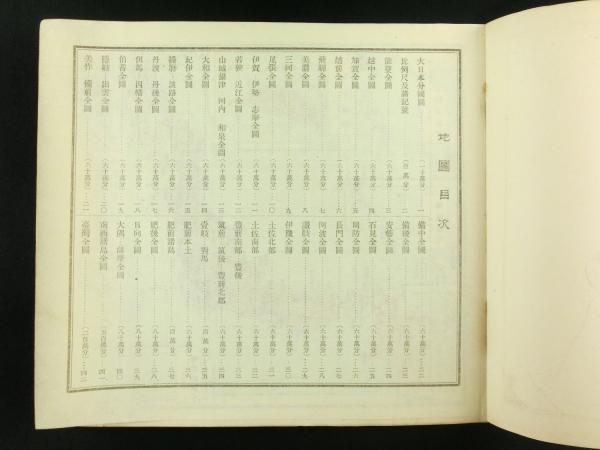 地圖目次
大日本分國圖……(一千萬分)…一
比例尺及諸記號……(百萬分)…二
能登全圖……(六十萬分)…三
越中全圖……(六十萬分)…四
加賀全圖……(六十萬分)…五
越前全圖……(六十萬分)…六
飛驒全圖……(六十萬分)…七
美濃全圖……(六十萬分)…八
三河全圖……(六十萬分)…九
尾張全圖……(六十萬分)…一〇
伊賀 伊勢 志摩全圖……(六十萬分)…一一
若狹 近江全圖……(六十萬分)…一二
山城 攝津 河內 和泉全圖……(六十萬分)…一三
大和全圖……(六十萬分)…一四
紀伊全圖……(六十萬分)…一五
播磨 淡路全圖……(六十萬分)…一六
丹波 丹後全圖……(六十萬分)…一七
但馬 因幡全圖……(六十萬分)…一八
伯耆全圖……(六十萬分)…一九
隱岐 出雲全圖……(六十萬分)…二〇
美作 備前全圖……(六十萬分)…二一
備中全圖……(六十萬分)…二二
備後全圖……(六十萬分)…二三
安藝全圖……(六十萬分)…二四
石見全圖……(六十萬分)…二五
周防全圖……(六十萬分)…二六
長門全圖……(六十萬分)…二七
阿波全圖……(六十萬分)…二八
讚岐全圖……(六十萬分)…二九
伊豫全圖……(六十萬分)…三〇
土佐北部……(六十萬分)…三一
土佐南部……(六十萬分)…三二
豐前南部 豐後……(六十萬分)…三三
筑前 筑後 豐前北部……(六十萬分)…三四
壹岐 對馬……(百萬分)…三五
肥前本土……(六十萬分)…三六
肥前諸島……(百萬分)…三七
肥後全圖……(八十萬分)…三八
日向全圖……(八十萬分)…三九
大隅 薩摩全圖……(八十萬分)…四〇
南西諸島全圖……(五百萬分)…四一
臺灣全圖……(二百萬分)…四二